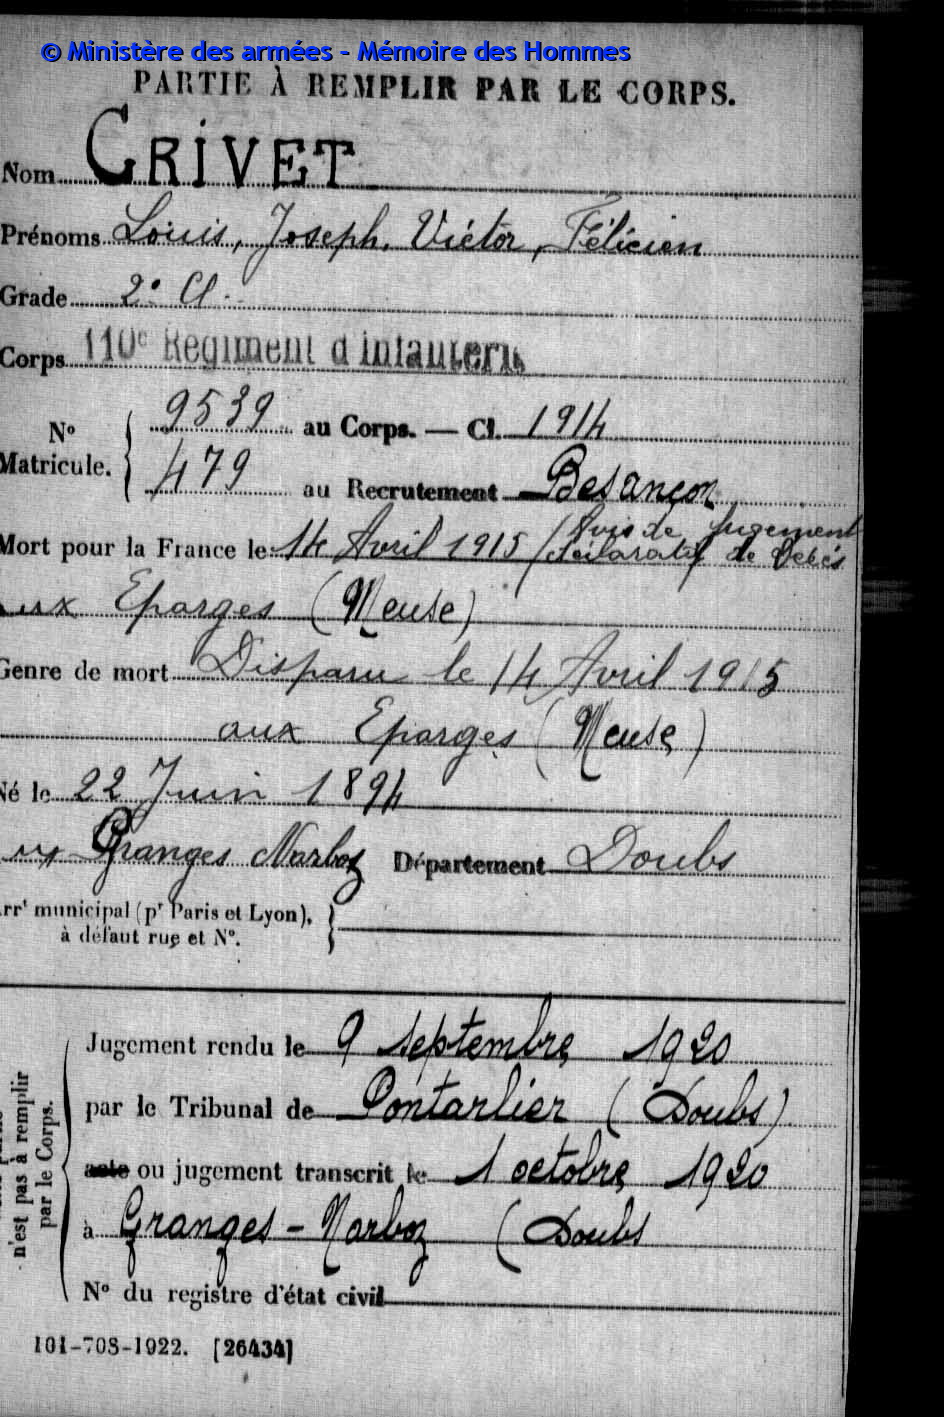 © Ministère des armées - Mémoire des Hommes
PARTIE À REMPLIR PAR LE CORPS.
Nom CRIVET
Prénoms Louis, Joseph, Victor, Félicien
Grade 2e Cl.
Corps 110e Régiment d'Infanterie
No Matricule. { 9539 au Corps. — Cl. 1914
479 au Recrutement Besançon
Mort pour la France le 14 Avril 1915 (Avis de Jugement
déclaratif de Décès
aux Eparges (Meuse)
Genre de mort Disparu le 14 Avril 1915
aux Eparges (Meuse)
Né le 22 Juin 1894
aux Granges Narboz Département Doubs
Arrt municipal (pr Paris et Lyon), }
à défaut rue et No.
n'est pas à remplir
par le Corps.
Jugement rendu le 9 septembre 1920
par le Tribunal de Pontarlier (Doubs)
acte ou jugement transcrit le 1 octobre 1920
à Granges-Narboz (Doubs
No du registre d'état civil
101-708-1922. [26434]